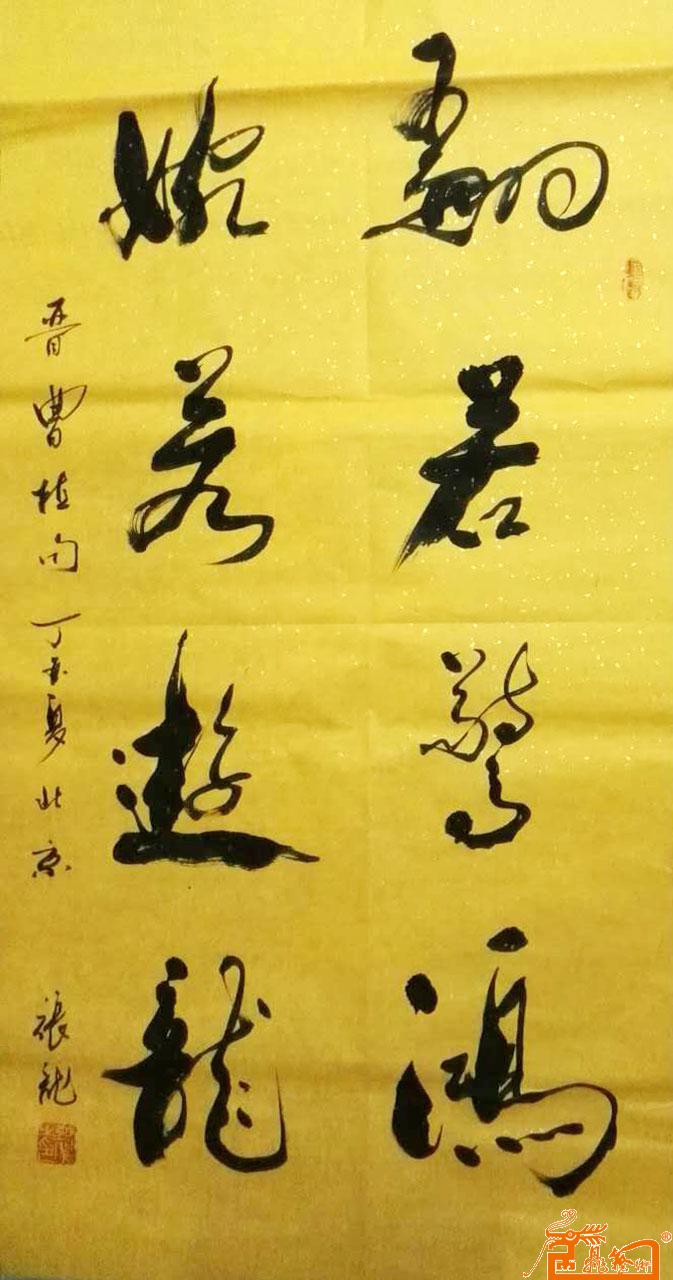 翩若驚鴻
婉若遊龍
晋曹植句 丁酉夏 北京 張龍